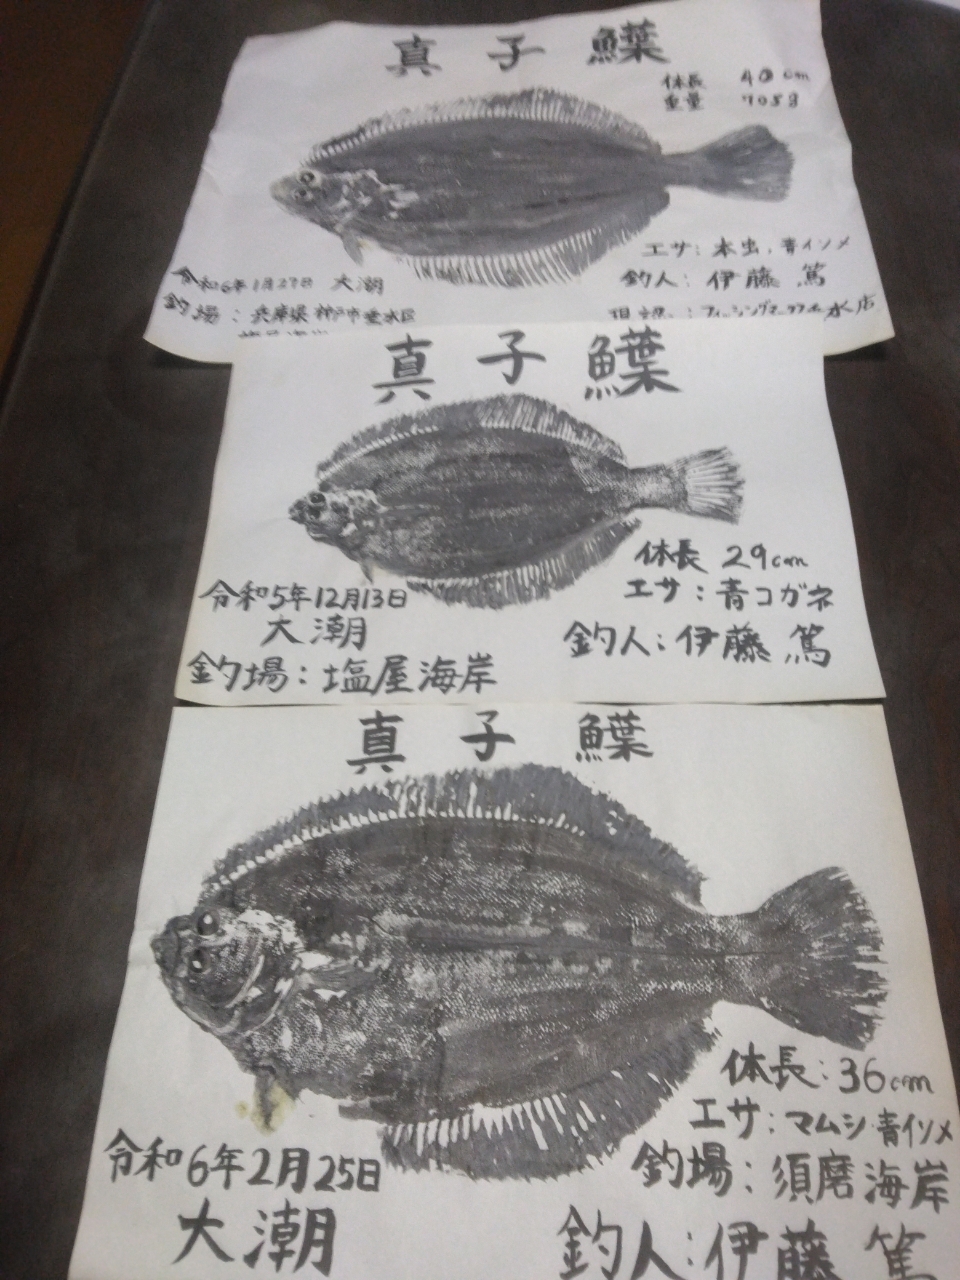 真子鰈
体長 40cm
重量 705g
エサ：本虫、青イソメ
令和6年1月27日 大潮
釣人：伊藤 篤
釣場：兵庫県神戸市垂水区
真子鰈
体長 29cm
エサ：青コガネ
令和5年12月13日
大潮
釣人：伊藤 篤
釣場：塩屋海岸
真子鰈
体長：36cm
エサ：マムシ 青イソメ
釣場：須磨海岸
令和6年2月25日
大潮
釣人：伊藤 篤